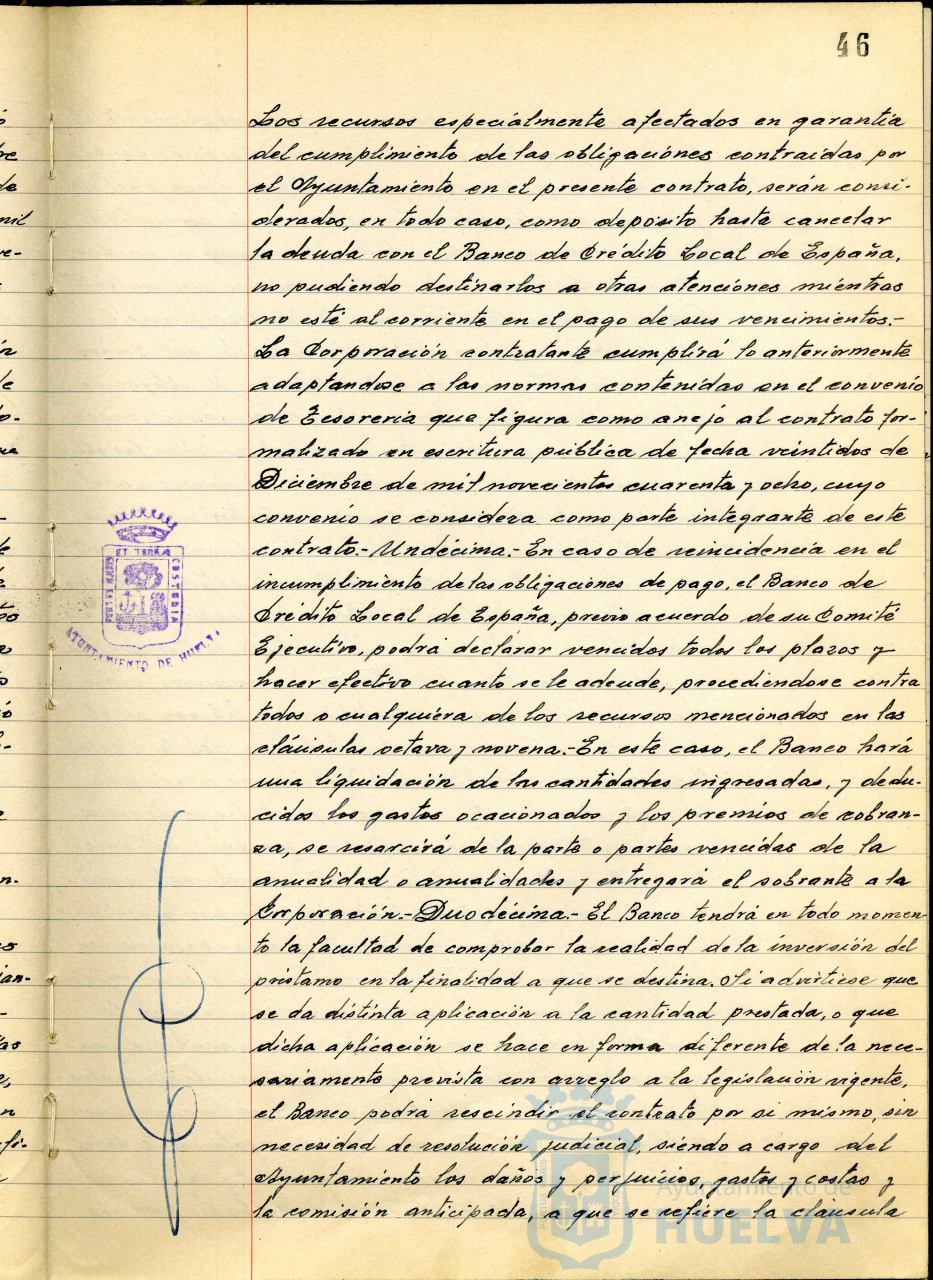 46
Los recursos especialmente afectados en garantía
del cumplimiento de las obligaciones contraidas por
el Ayuntamiento en el presente contrato, serán consi-
derados, en todo caso, como depósito hasta cancelar
la deuda con el Banco de Crédito Local de España,
no pudiendo destinarlos a otras atenciones mientras
no esté al corriente en el pago de sus vencimientos.-
La Corporación contratante cumplirá lo anteriormente
adaptandose a las normas contenidas en el convenio
de Tesoreria que figura como anejo al contrato for-
malizado en escritura pública de fecha veintidos de
Diciembre de mil novecientos cuarenta y ocho, cuyo
convenio se considera como parte integrante de este
contrato.- Undécima.- En caso de reincidencia en el
incumplimiento de las obligaciones de pago, el Banco de
Crédito Local de España, previo acuerdo de su Comité
Ejecutivo, podrá declarar vencidos todos los plazos y
hacer efectivo cuanto se le adeude, procediendose contra
todos o cualquiera de los recursos mencionados en las
cláusulas octava y novena.- En este caso, el Banco hará
una liquidación de las cantidades ingresadas, y dedu-
cidos los gastos ocacionados y los premios de cobran-
za, se resarcirá de la parte o partes vencidas de la
anualidad o anualidades y entregará el sobrante a la
Corporación.- Duodécima.- El Banco tendrá en todo momen-
to la facultad de comprobar la realidad de la inversión del
préstamo en la finalidad a que se destina. Si advirtiese que
se da distinta aplicación a la cantidad prestada, o que
dicha aplicación se hace en forma diferente de la nece-
sariamente prevista con arreglo a la legislación vigente,
el Banco podrá rescindir el contrato por si mismo, sin
necesidad de resolución judicial, siendo a cargo del
Ayuntamiento los daños y perjuicios, gastos y costas y
la comisión anticipada, a que se refiere la cláusula
PORTUS MARIS
ET TERRA
CUSTODIA
AYUNTAMIENTO DE HUELVA
Ayuntamiento de
HUELVA